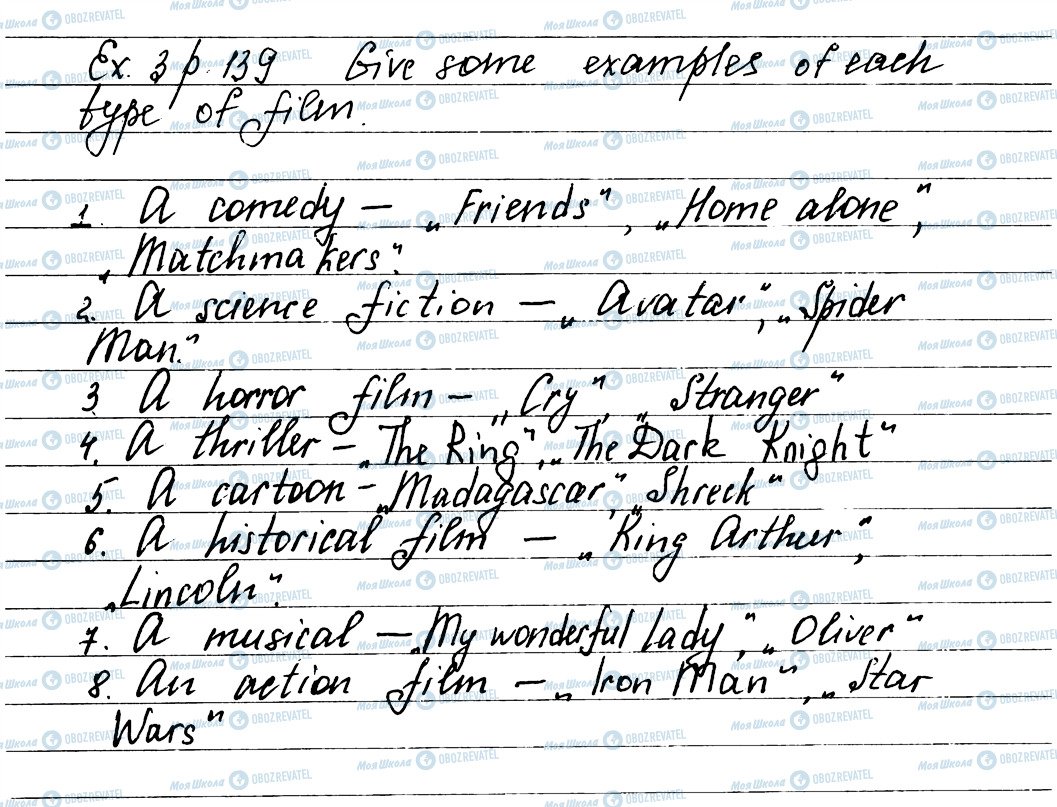 Ex. 3 p. 139 Give some examples of each
type of film.
1. A comedy – „Friends“, „Home alone“,
„Matchmakers“.
2. A science fiction – „Avatar“, „Spider
Man“.
3. A horror film – „Cry“, „Stranger“
4. A thriller – „The Ring“, „The Dark Knight“
5. A cartoon – „Madagascar“, „Shreck“
6. A historical film – „King Arthur“,
„Lincoln“.
7. A musical – „My wonderful lady“, „Oliver“
8. An action film – „Iron Man“, „Star
Wars“